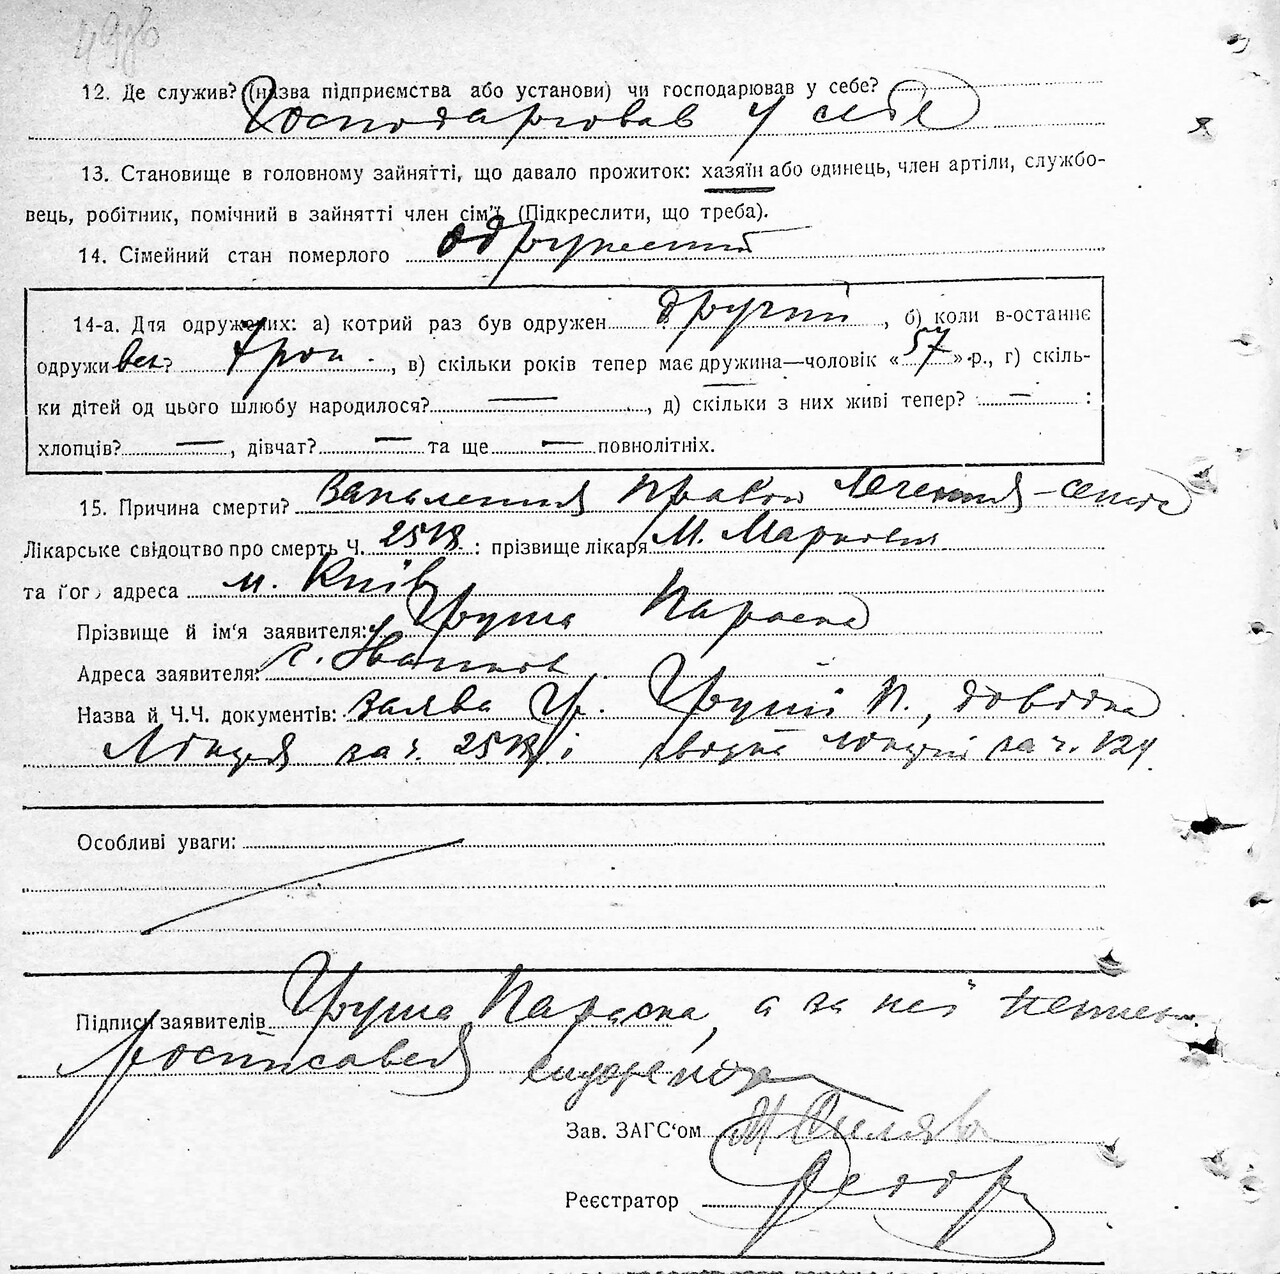 12. Де служив? (назва підприємства або установи) чи господарював у себе?
Господарював у себе
13. Становище в головному зайнятті, що давало прожиток: хазяїн або одинець, член артіли, службо-
вець, робітник, помічний в зайнятті член сім'ї (Підкреслити, що треба).
14. Сімейний стан померлого одружений
14-а. Для одружених: а) котрий раз був одружен другий, б) коли в-останнє
одружи вся? , в) скільки років тепер має дружина—чоловік «57» р., г) скіль-
ки дітей од цього шлюбу народилося? — , д) скільки з них живі тепер? — :
хлопців? — , дівчат? — та ще — повнолітніх.
15. Причина смерти? Запалення правой легення - сепсис
Лікарське свідоцтво про смерть Ч. 2518 : прізвище лікаря М.
та його адреса м. Київ
Прізвище й ім'я заявителя: Груша Параска
Адреса заявителя: с. Іванков
Назва й Ч.Ч. документів: заява гр. Груші П., довідка
Лікаря за ч. 2518 і за ч. 124.
Особливі уваги:
Підписи заявителів Груша Параска, а за неї
Зав. ЗАГС'ом
Реєстратор